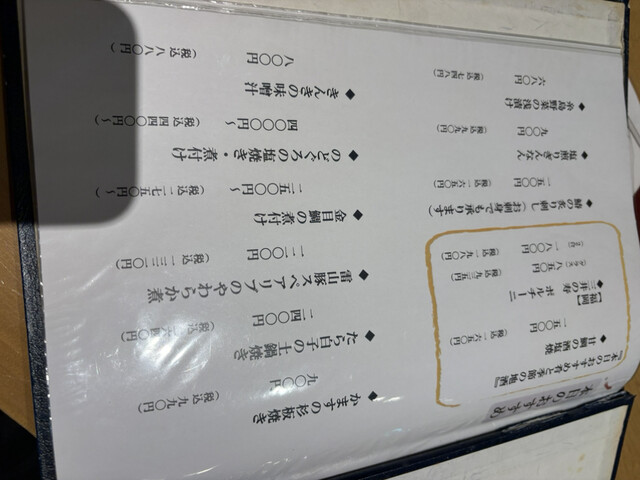 本日のおすすめ
『本日のおすすめ肴と季節の地酒』
◆甘鯛の酒塩焼
一五〇〇円
(税込一六五〇円)
【福岡】
◆三井の寿 ポルチーニ
八五〇円
(税込九三五円)
一八〇〇円
(税込一九八〇円)
◆鰆の炙り刺(お刺身でも承ります)
一五〇〇円
(税込一六五〇円)
◆塩煎りぎんなん
九〇〇円
(税込九九〇円)
◆糸島野菜の浅漬け
六八〇円
(税込七四八円)
◆かますの杉板焼き
九〇〇円
(税込九九〇円)
◆たら白子の土鍋焼き
二四〇〇円
(税込二六四〇円)
◆雷山豚スペアリブのやわらか煮
一二〇〇円
(税込一三二〇円)
◆金目鯛の煮付け
二五〇〇円〜
(税込二七五〇円〜)
◆のどぐろの塩焼き・煮付け
四〇〇〇円〜
(税込四四〇〇円〜)
◆きんきの味噌汁
八〇〇円
(税込八八〇円)